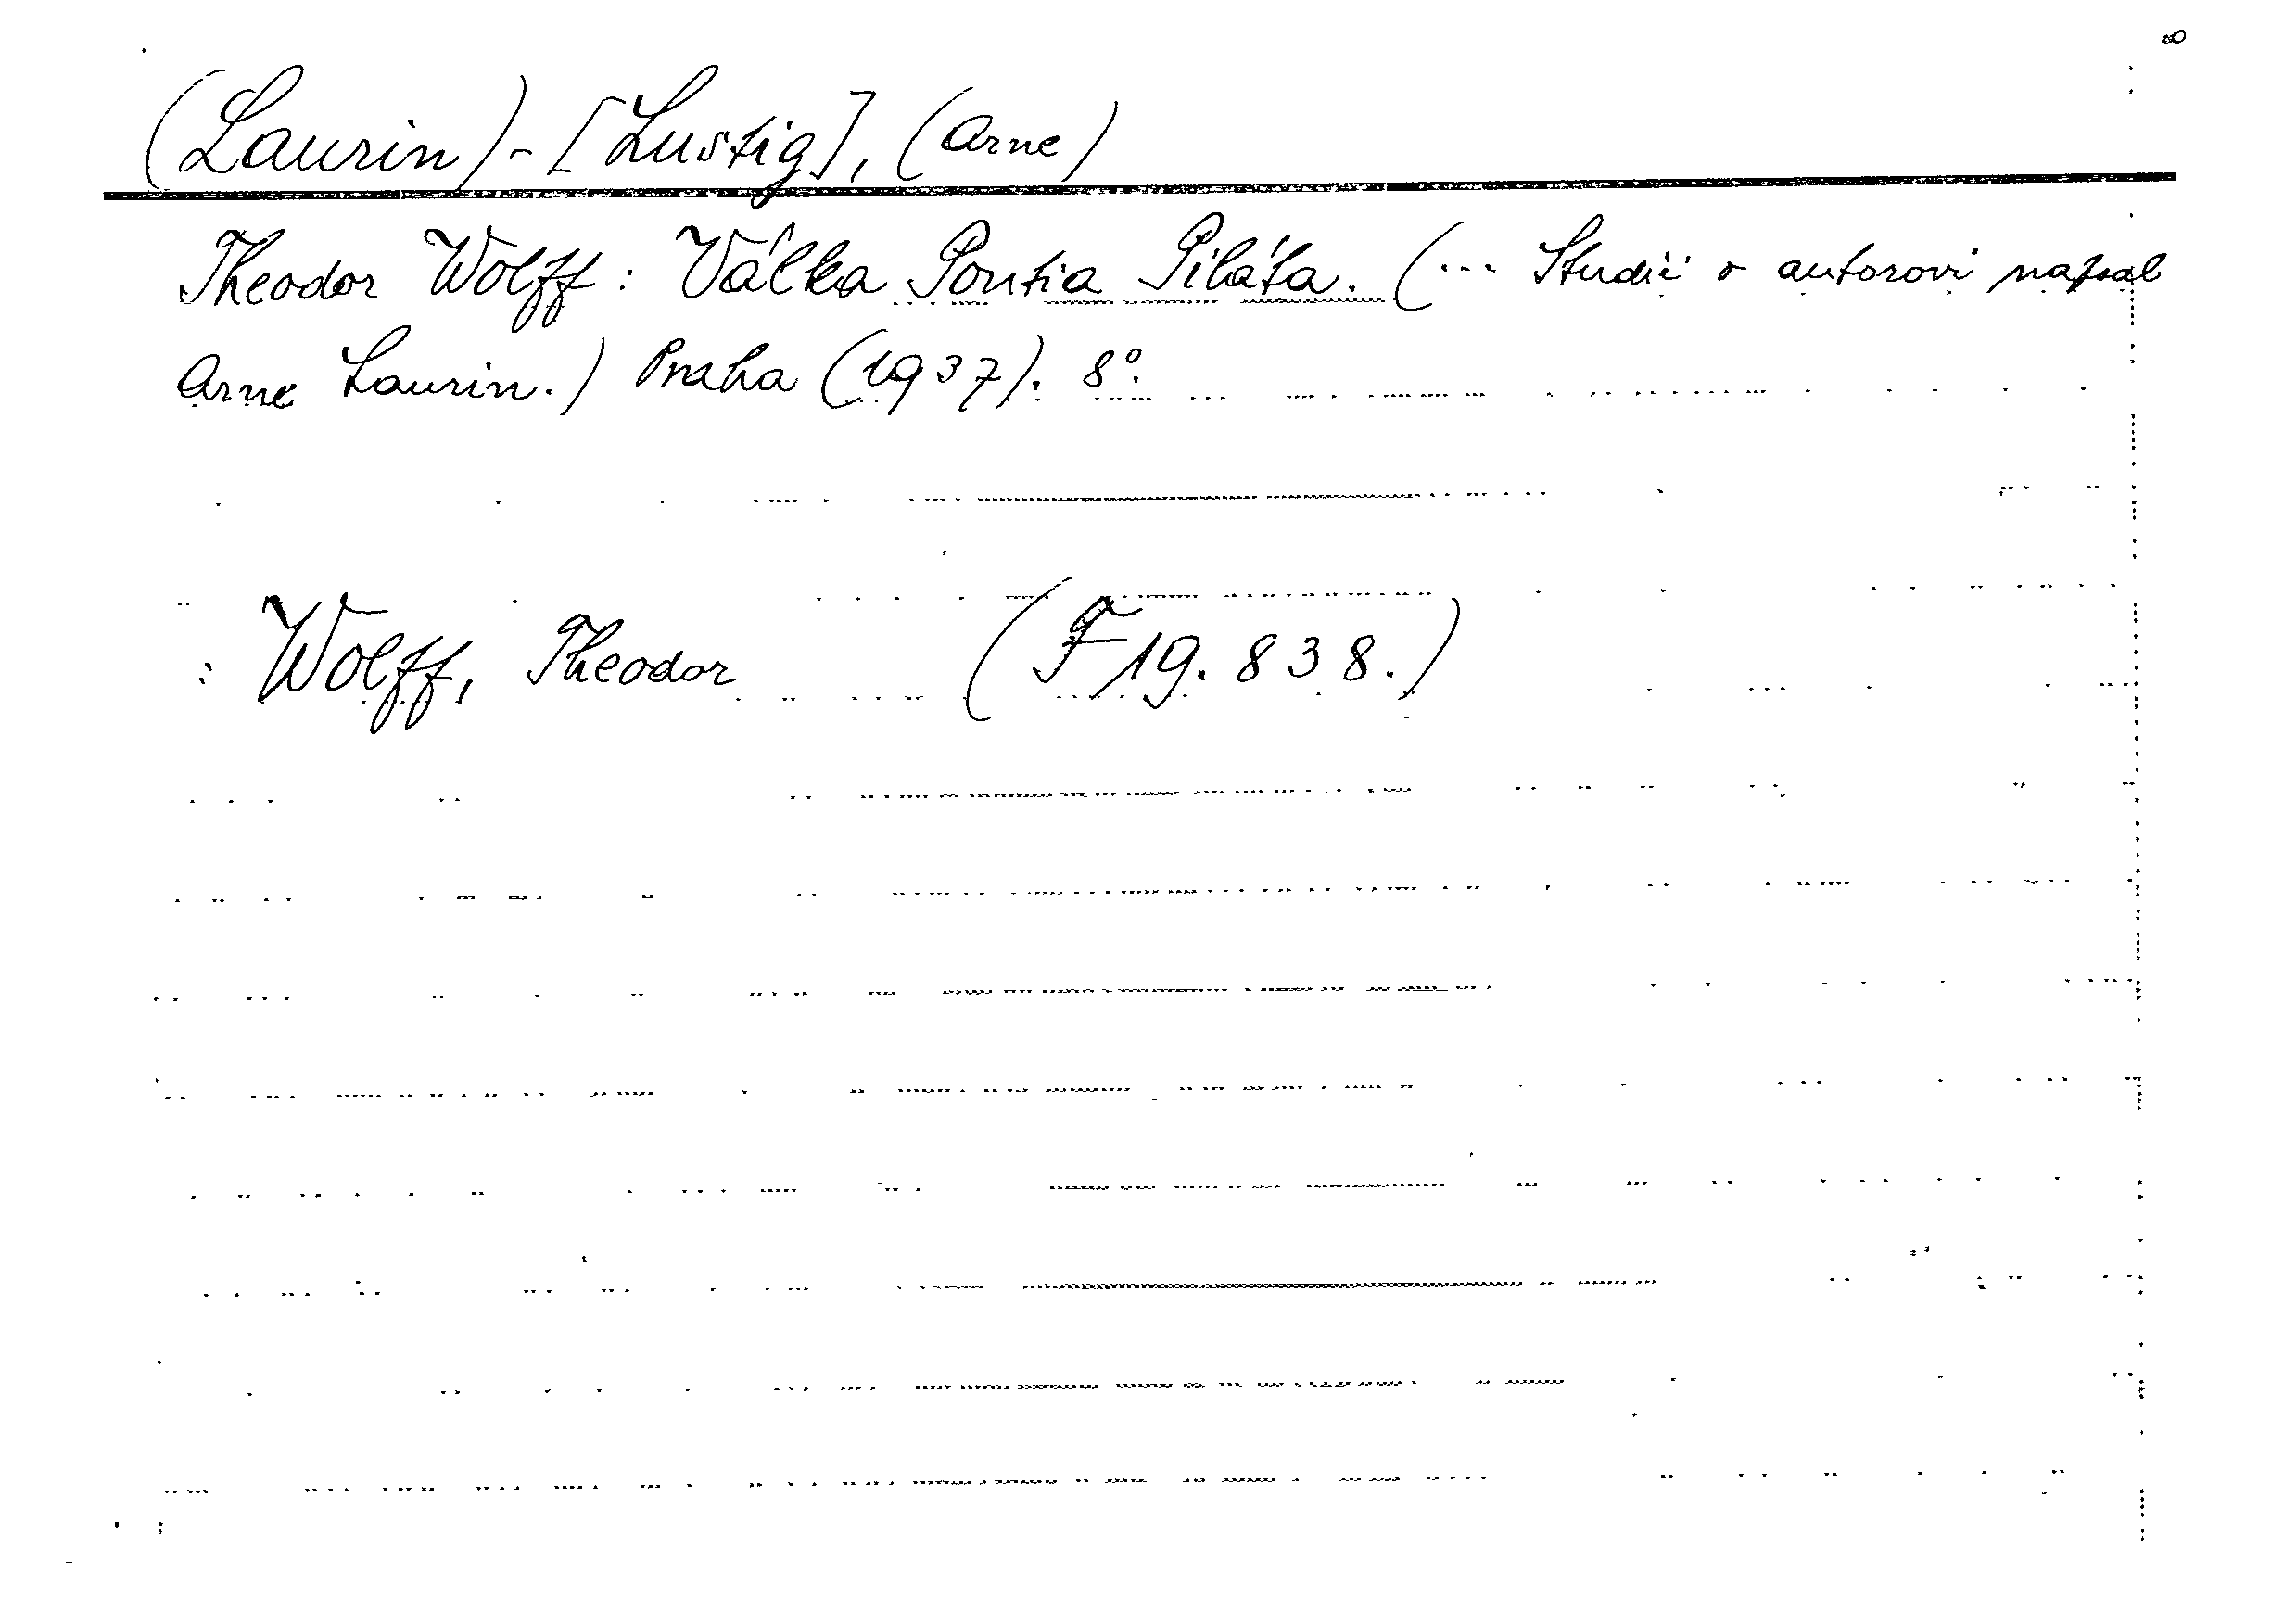 (Laurin)-[Lustig], (Arne)
Theodor Wolff: Válka Pontia Piláta. (... Studii o autorovi napsal
Arne Laurin.) Praha (1937). 8°.
: Wolff, Theodor (F 19.838.)